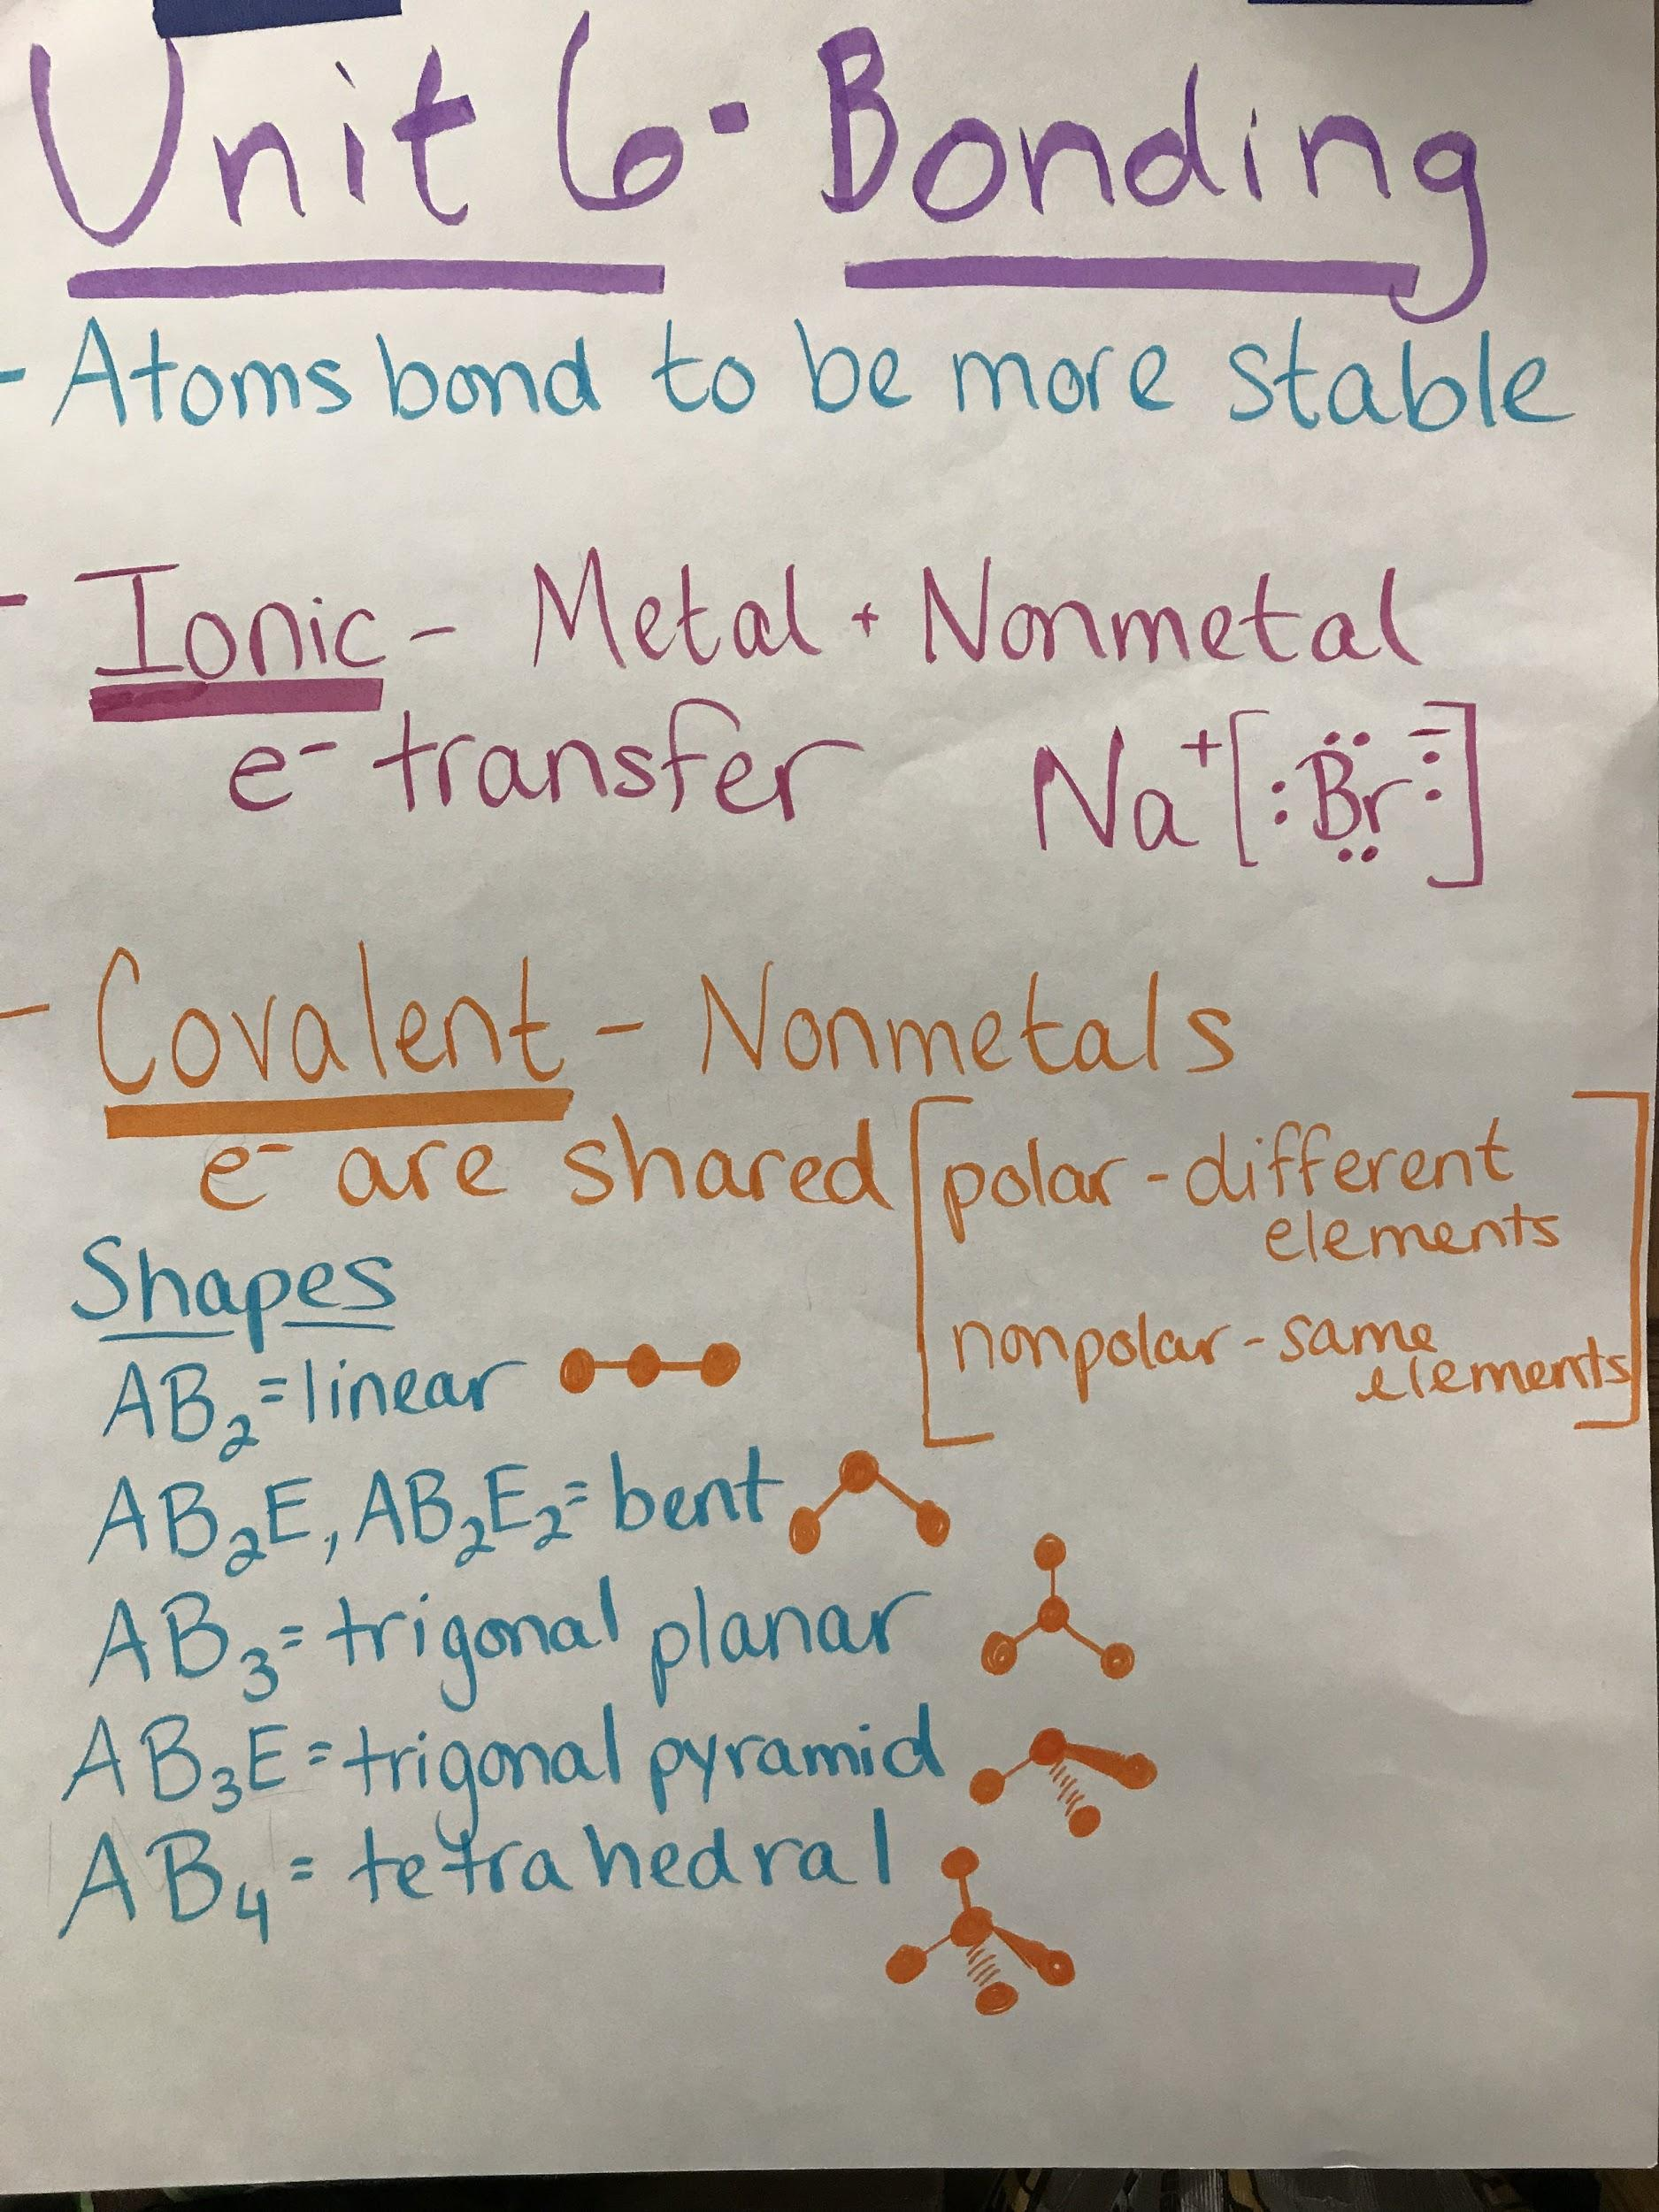 Unit 6 - Bonding
- Atoms bond to be more stable
- Ionic - Metal + Nonmetal
e⁻ transfer Na⁺[:B̤̈r:⁻]
- Covalent - Nonmetals
e⁻ are shared [polar - different
elements
nonpolar - same
elements]
Shapes
AB₂ = linear
AB₂E, AB₂E₂ = bent
AB₃ = trigonal planar
AB₃E = trigonal pyramid
AB₄ = tetrahedral